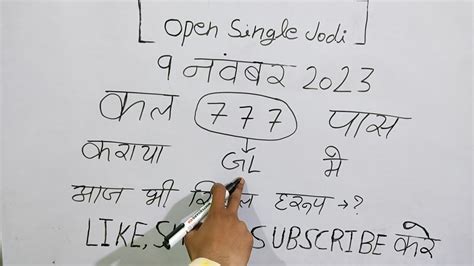 [Open Single Jodi]
९ नवंबर 2023
कल 777 पास
कराया GL मे
आज भी हरूप →?
LIKE, SUBSCRIBE करे